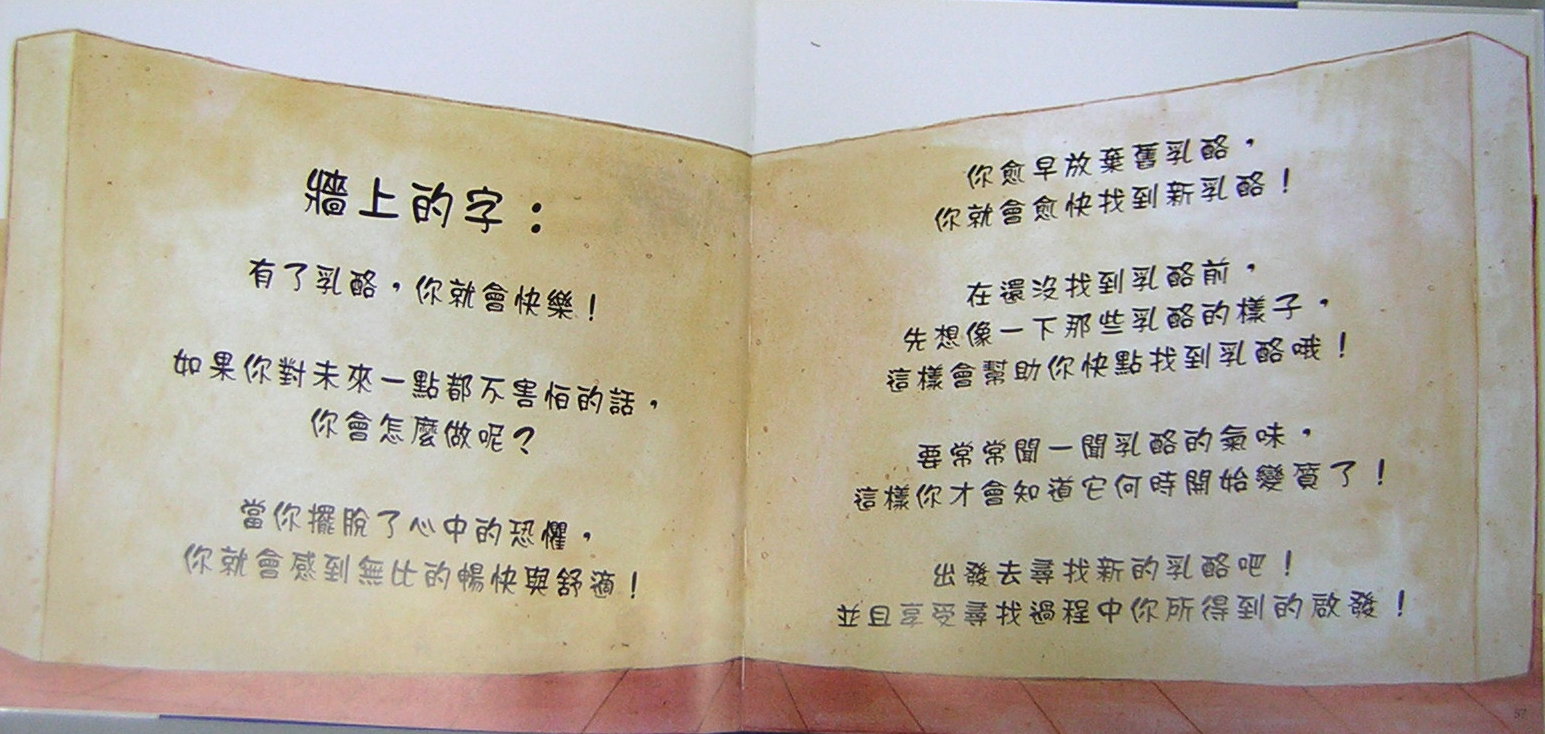 牆上的字：
有了乳酪，你就會快樂！
如果你對未來一點都不害怕的話，
你會怎麼做呢？
當你擺脫了心中的恐懼，
你就會感到無比的暢快與舒適！
你愈早放棄舊乳酪，
你就會愈快找到新乳酪！
在還沒找到乳酪前，
先想像一下那些乳酪的樣子，
這樣會幫助你快點找到乳酪哦！
要常常聞一聞乳酪的氣味，
這樣你才會知道它何時開始變質了！
出發去尋找新的乳酪吧！
並且享受尋找過程中你所得到的啟發！
57